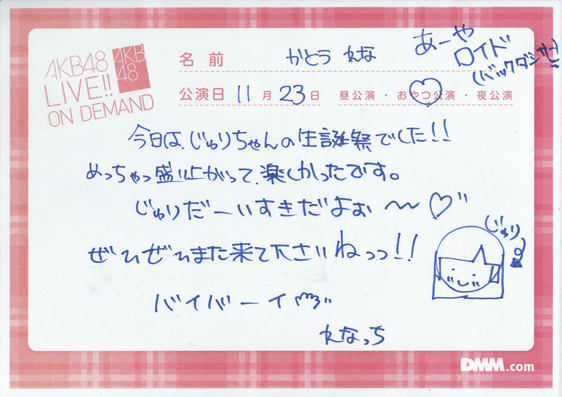 AKB48
LIVE!!
ON DEMAND
AKB
48
名前 かとう れな
あーや
ロイド
(バックダンサー)
公演日 11月23日 昼公演・おやつ公演・夜公演
今日は、じゅりちゃんの生誕祭でした!!
めっちゃっ盛り上がって、楽しかったです。
じゅりだーいすきだよぉ〜♡
ぜひぜひまた来て下さいねっっ!!
じゅり
バイバーイ
れなっち
DMM.com